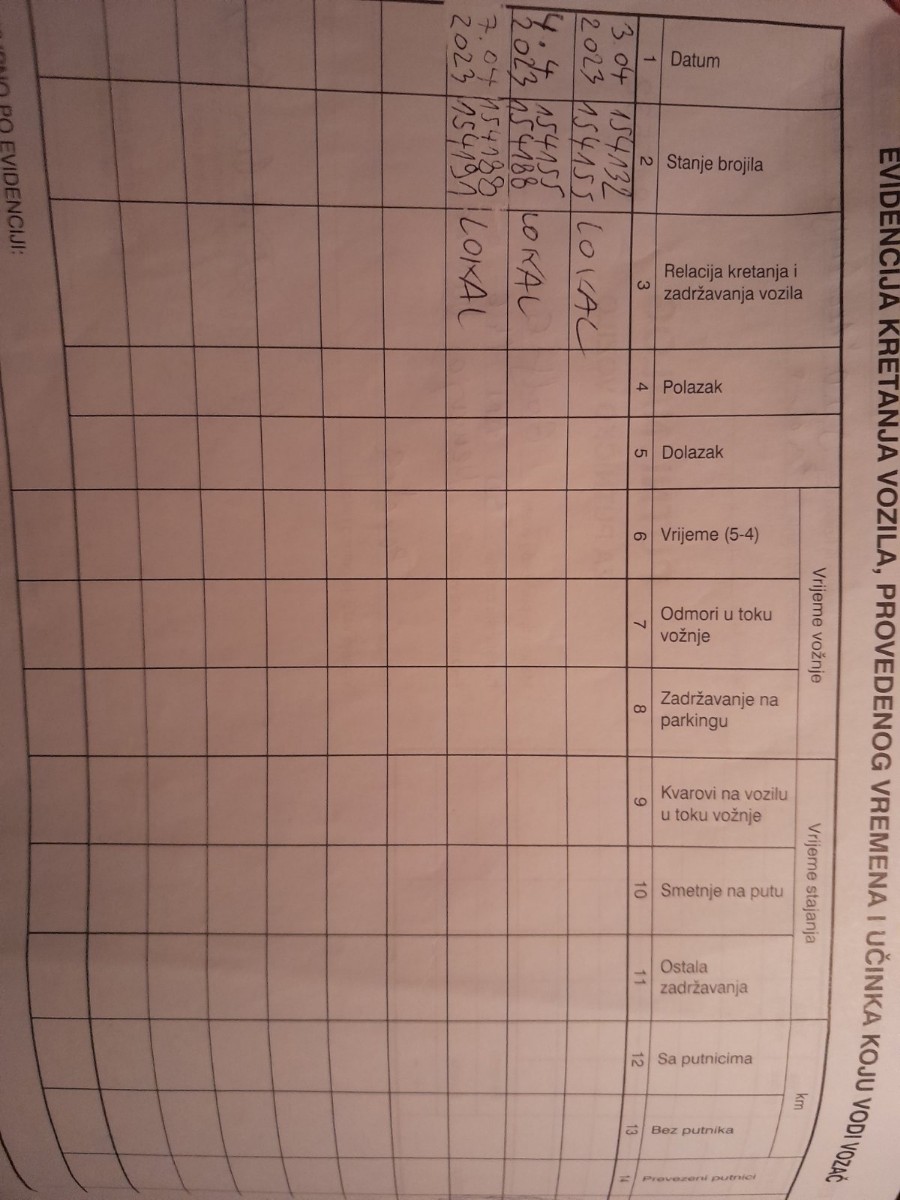 EVIDENCIJA KRETANJA VOZILA, PROVEDENOG VREMENA I UČINKA KOJU VODI VOZAČ
Vrijeme vožnje
Vrijeme stajanja
km
Datum
Stanje brojila
Relacija kretanja i
zadržavanja vozila
Polazak
Dolazak
Vrijeme (5-4)
Odmori u toku
vožnje
Zadržavanje na
parkingu
Kvarovi na vozilu
u toku vožnje
Smetnje na putu
Ostala
zadržavanja
Sa putnicima
Bez putnika
Prevezeni putnici
1 2 3 4 5 6 7 8 9 10 11 12 13 14
3.04 154132
2023 154155 LOKAL
4.4 154155
2023 154188 LOKAL
7.04 154188
2023 154191 LOKAL
PO EVIDENCIJI: